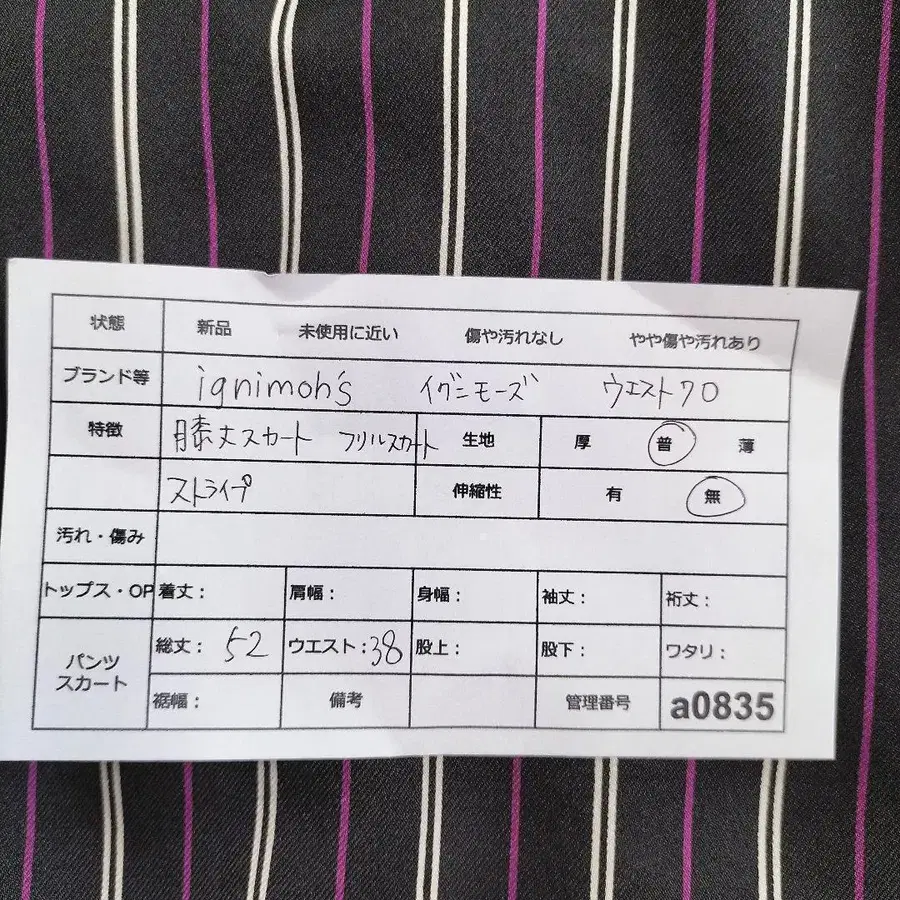 状態 新品 未使用に近い 傷や汚れなし やや傷や汚れあり
ブランド等 ignimoh's イグニモーズ ウエスト70
特徴 膝丈スカート フリルスカート 生地 厚 普 薄
ストライプ 伸縮性 有 無
汚れ・傷み
トップス・OP 着丈： 肩幅： 身幅： 袖丈： 裄丈：
パンツ
スカート
総丈： 52 ウエスト：38 股上： 股下： ワタリ：
裾幅： 備考 管理番号 a0835